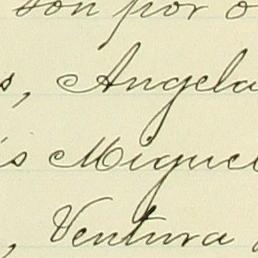 son por o
s, Angela
is Miguel
, Ventura